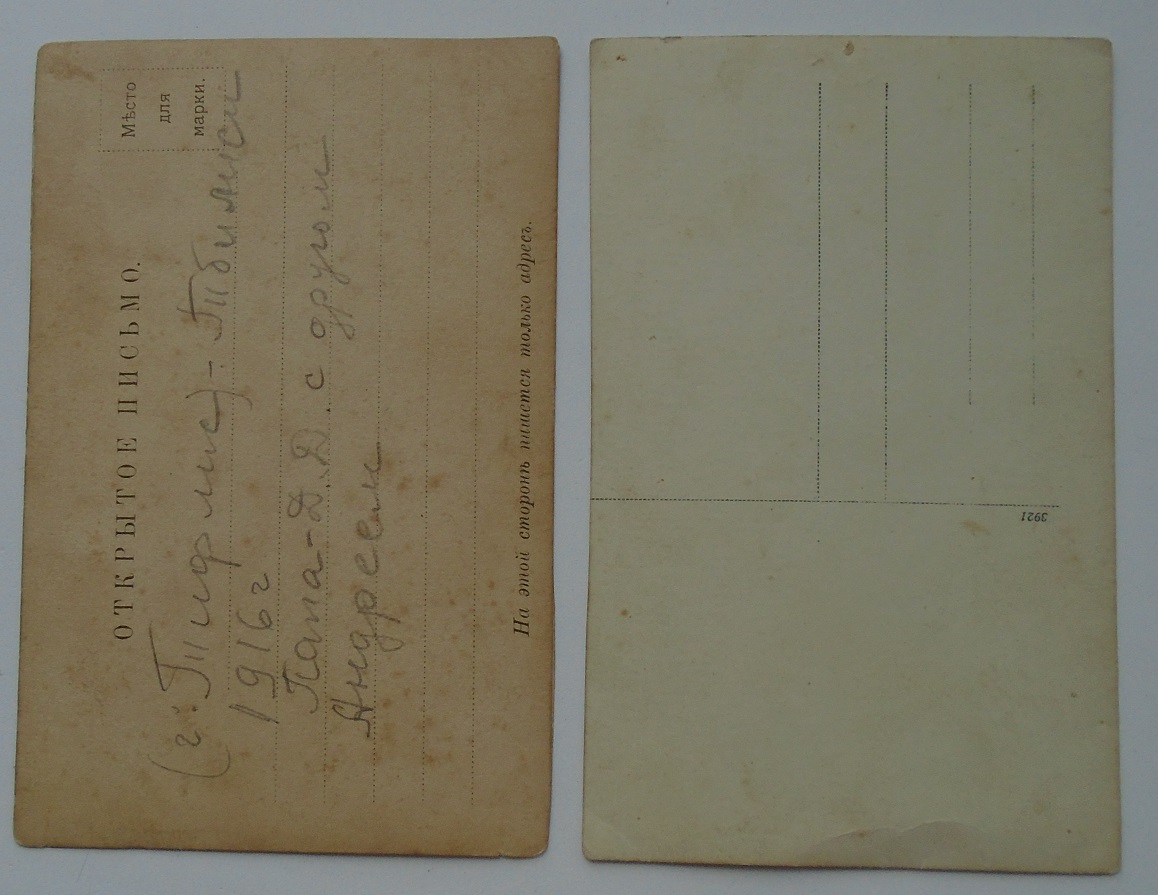 ОТКРЫТОЕ ПИСЬМО.
Мѣсто
для
марки.
(г. Тифлис) - Тбилиси
1916 г
Папа - Д. Д. с другом
Андреем
На этой сторонѣ пишется только адресъ.
3921